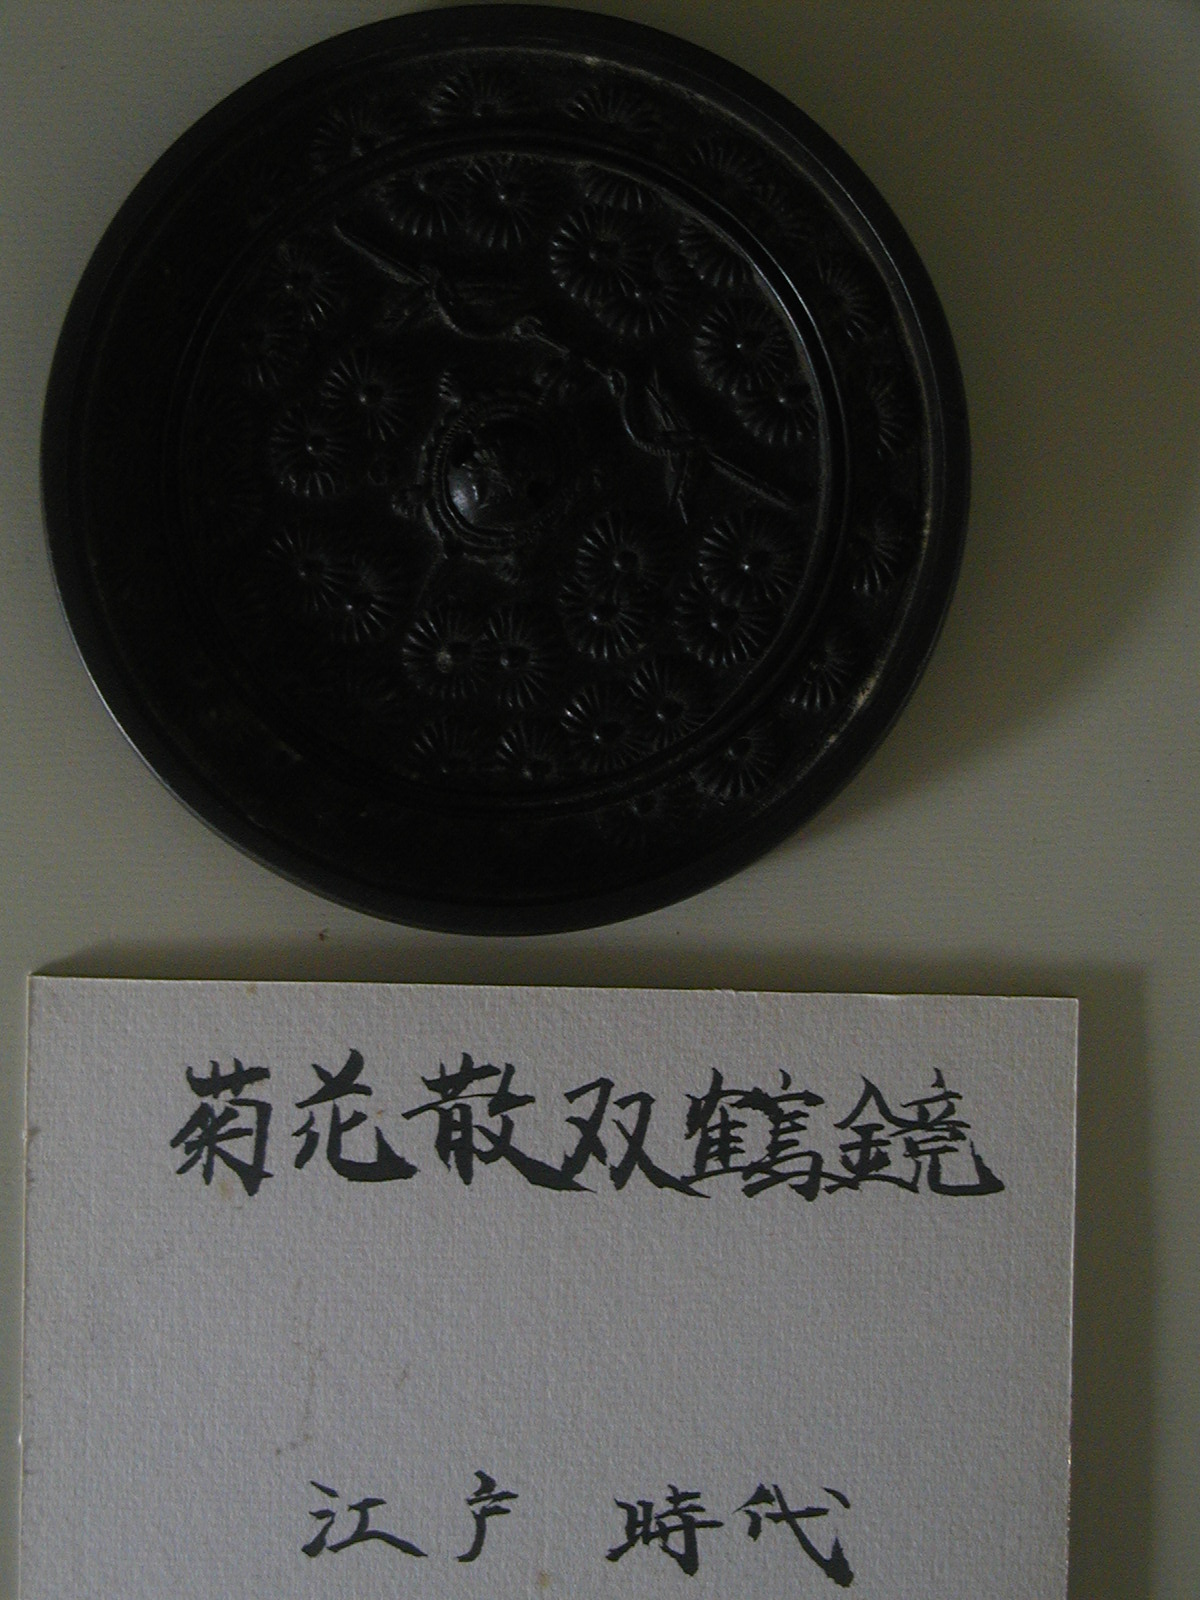 菊花散双鶴鏡
江戸 時代